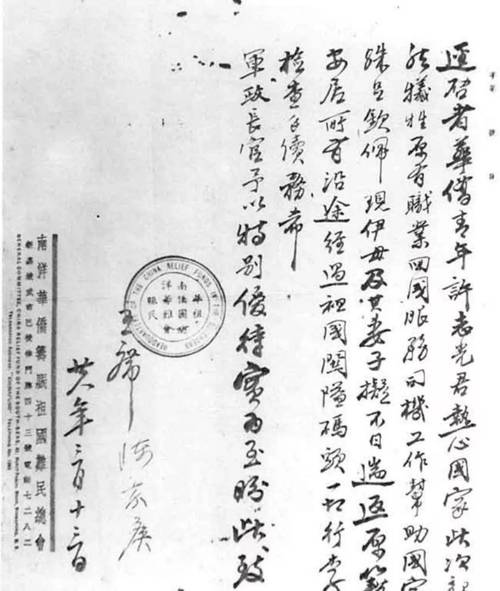 逕啓者華僑青年許志光君熱心國家此次
然犧牲原有職業回國服務司機工作幫助國家
殊足欽佩現伊母及其妻子擬不日遄返原籍
安居所有沿途經過祖國關隘碼頭一切行李
檢查手續務希
軍政長官予以特別優待實為至盼此致
CHINA RELIEF FUNDS IN THE
主席 陳嘉庚
廿八年三月十三日
南洋華僑籌賑祖國難民總會
四十三號電話七二八二
GENERAL COMMITTEE, CHINA RELIEF FUND OF THE SOUTH SEAS